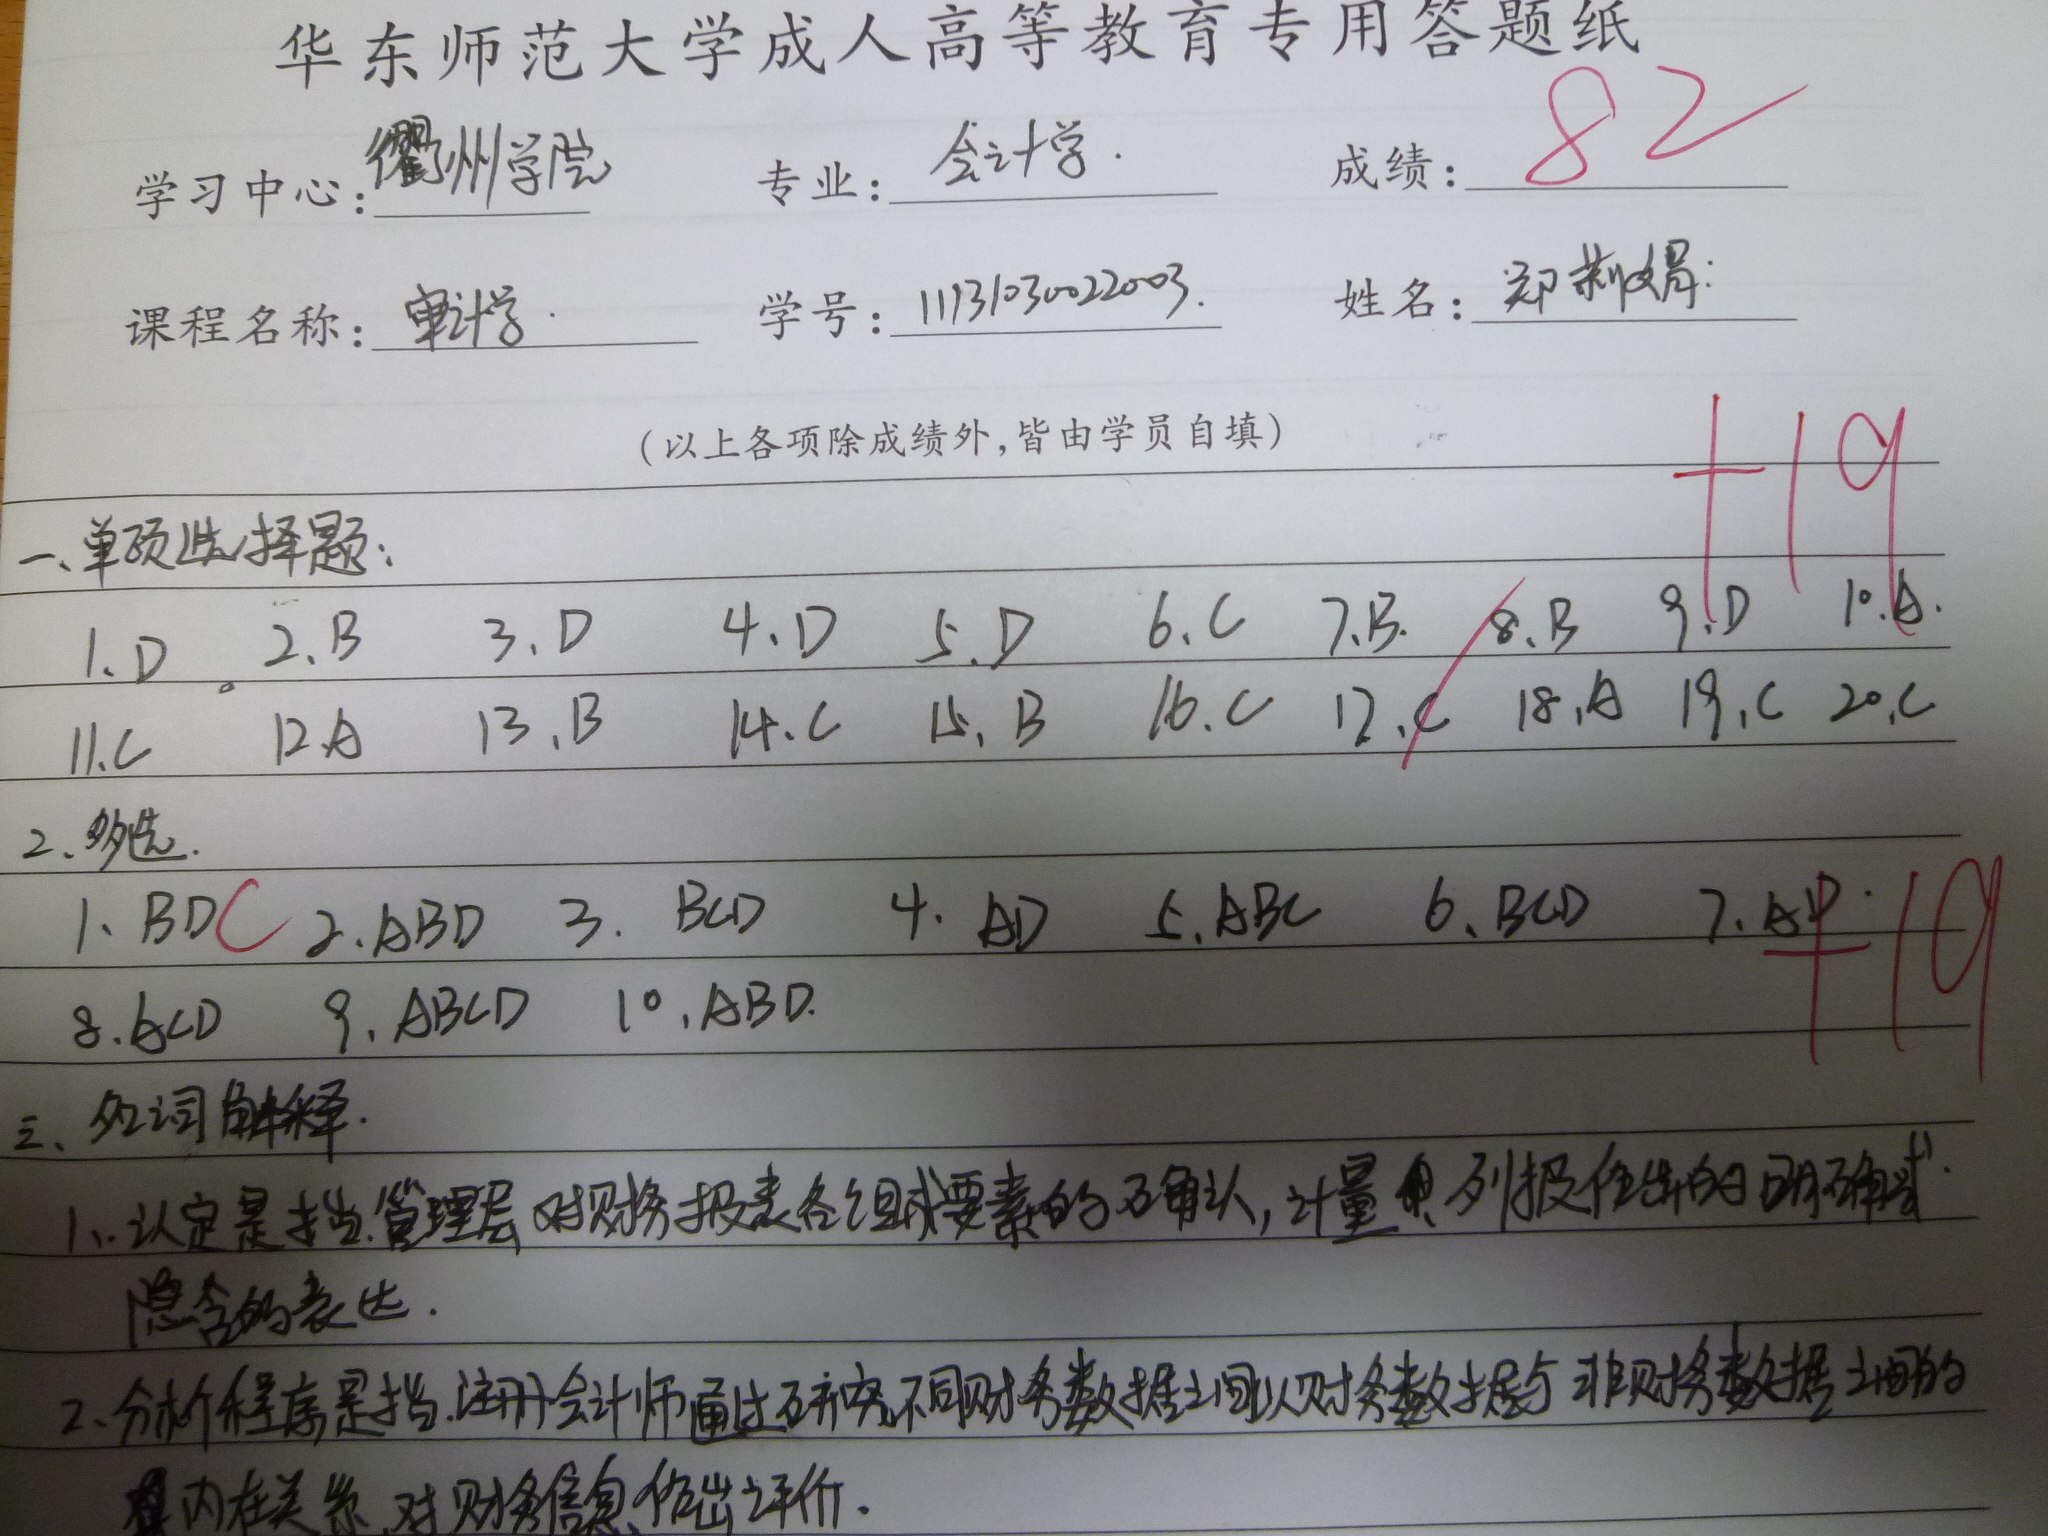 华东师范大学成人高等教育专用答题纸
学习中心:衢州学院 专业:会计学. 成绩:82
课程名称:审计学. 学号:11131030022003. 姓名:郑莉娟.
(以上各项除成绩外,皆由学员自填)
+19
一、单项选择题:
1.D 2.B 3.D 4.D 5.D 6.C 7.B. 8.B 9.D 10.A.
11.C 12.A 13.B 14.C 15.B 16.C 17.C 18.A 19.C 20.C
2、多选.
1、BDC 2.ABD 3. BCD 4. AD 5.ABC 6、BCD 7.AD.
+19
8.ACD 9.ABCD 10.ABD.
三、名词解释.
1、认定是指管理层对财务报表各组成要素的确认,计量、列报作出的明确或
隐含的表达.
2、分析程序是指注册会计师通过研究不同财务数据之间以财务数据与非财务数据之间的
内在关系,对财务信息作出评价.